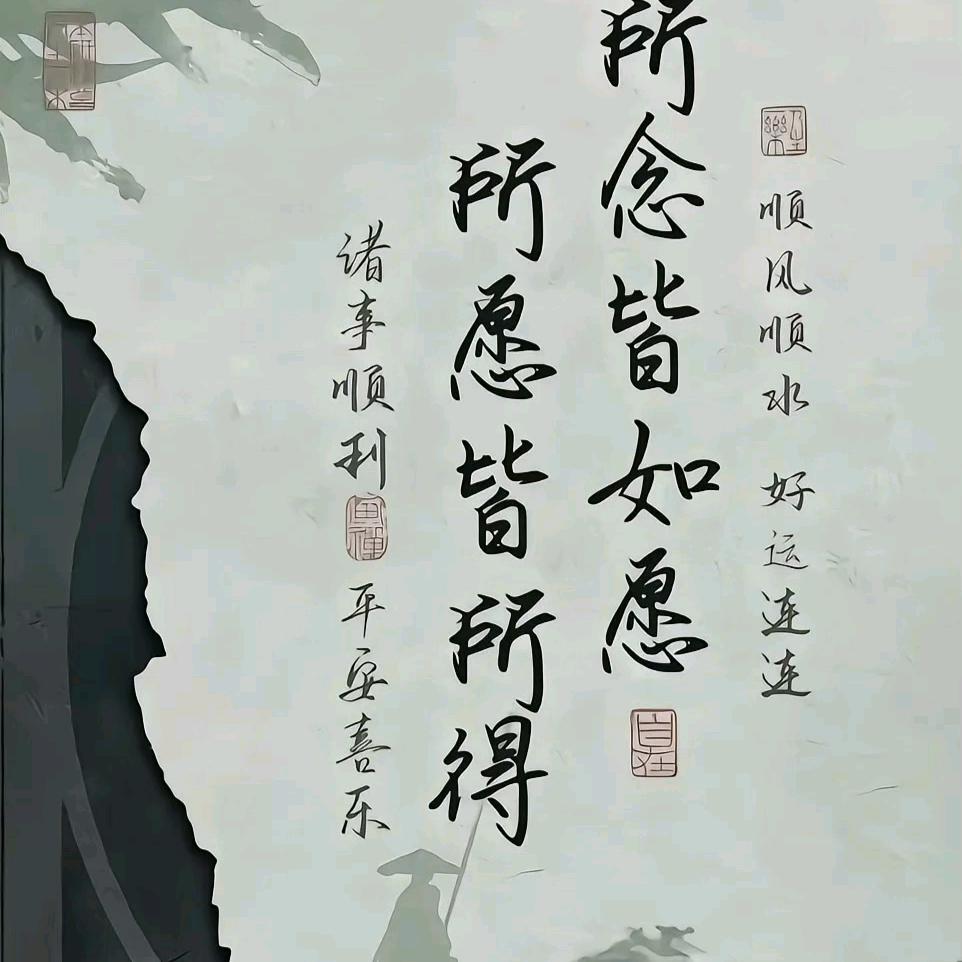 顺风顺水 好运连连
所念皆如愿
自在
所愿皆所得
诸事顺利
平安喜乐